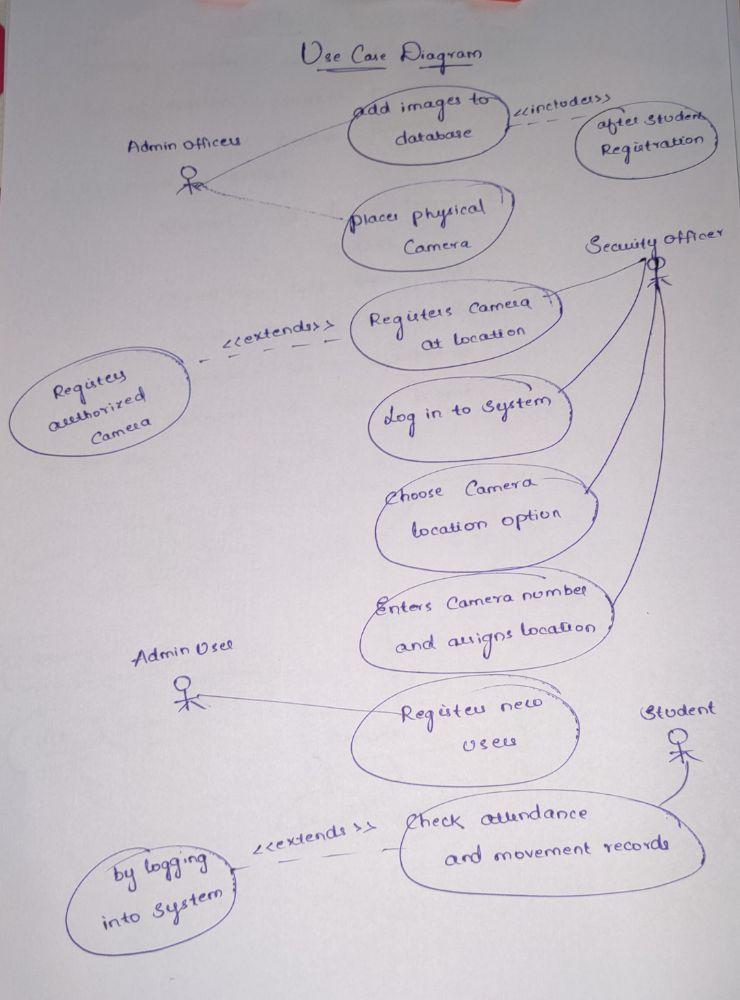 Use Case Diagram
add images to
database
<<includes>>
after student
Registration
Admin officers
places physical
Camera
Security officer
Registers Camera
at location
<<extends>>
Registers
authorized
Camera
Log in to system
Choose Camera
location option
Enters Camera number
and assigns location
Admin User
Registers new
users
Student
Check attendance
and movement records
<<extends>>
by logging
into system